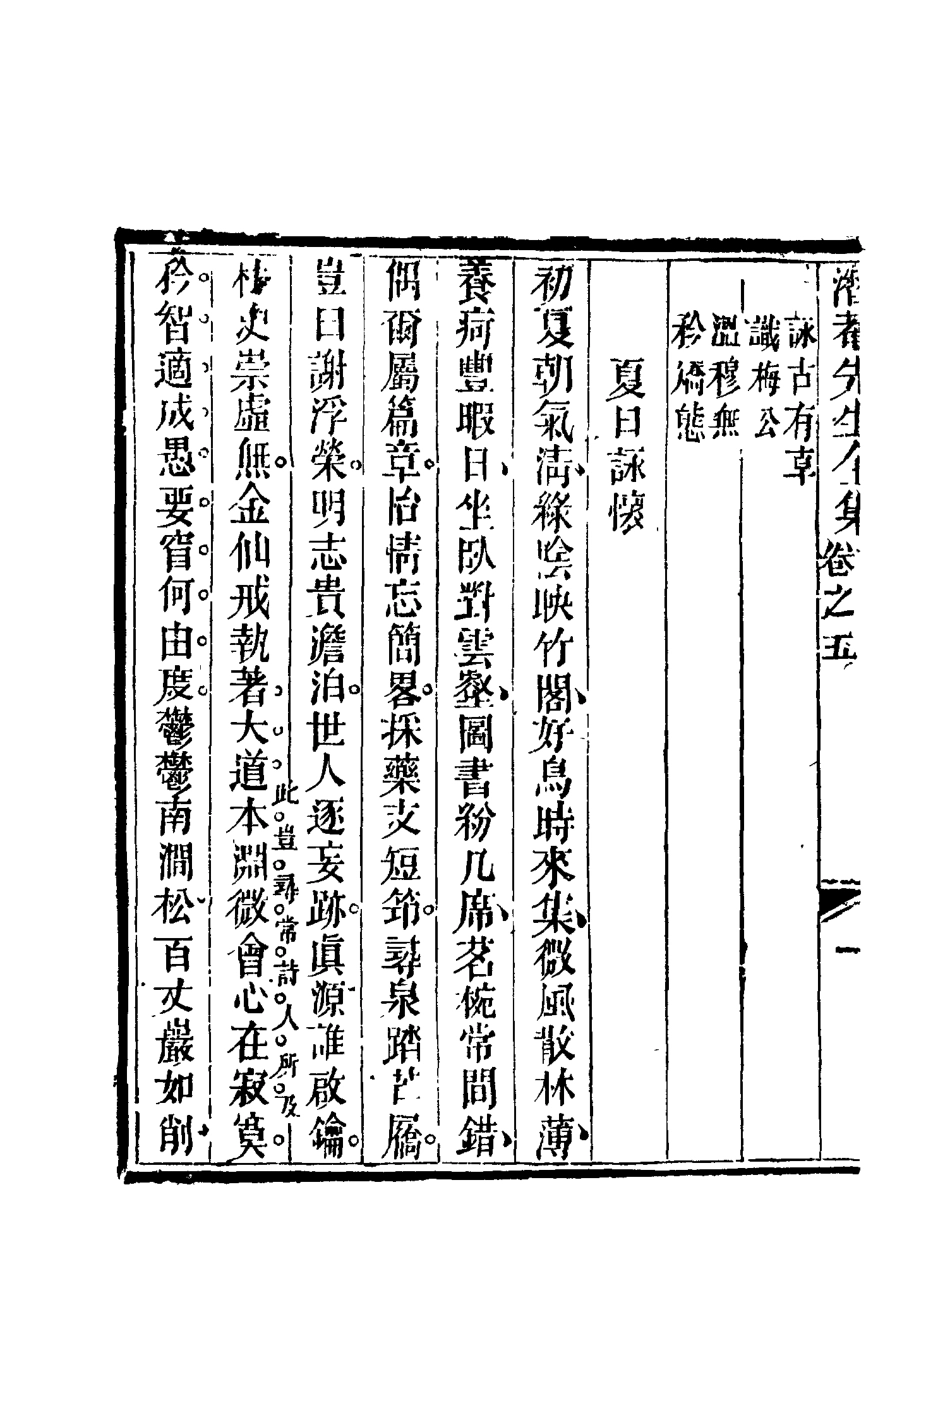 潛菴先生全集卷之五 一
詠古有章
識梅公
溫穆無
矜矯態
夏日詠懷
初夏朝氣淸綠陰映竹閣好鳥時來集微風散林薄
養疴豐暇日坐臥對雲壑圖書紛几席茗椀常間錯
偶爾屬篇章怡情忘簡畧採藥支短筇尋泉踏芒屩
豈曰謝浮榮明志貴澹泊世人逐妄跡眞源誰啟鑰
柱史崇虛無金仙戒執著大道本淵微會心在寂寞
此豈尋常詩人所及
矜智適成愚要窅何由度鬱鬱南澗松百丈巖如削